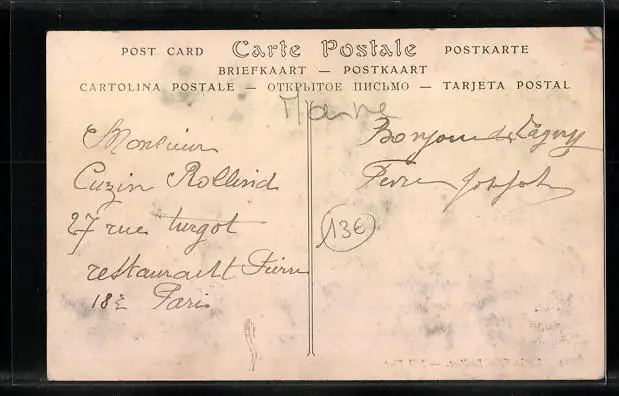 POST CARD Carte Postale POSTKARTE
BRIEFKAART — POSTKAART
CARTOLINA POSTALE — ОТКРЫТОЕ ПИСЬМО — TARJETA POSTAL
Marne
Monsieur
Cuzin Rollind
27 rue turgot
restaurant Pierre
18E Paris
Bonjour de Lagny
13€